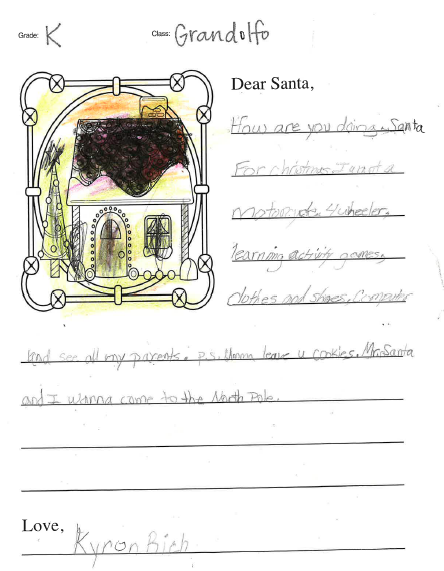 Grade: K
Class: Grandolfo
Dear Santa,
How are you doing. Santa
For christmas I want a
Motorcycle. 4 wheeler.
learning activity games.
clothes and shoes. Computer
and see all my parents. p.s. Umm leave u cookies. Mr. Santa
and I wanna come to the North Pole.
Love,
Kyron Rich